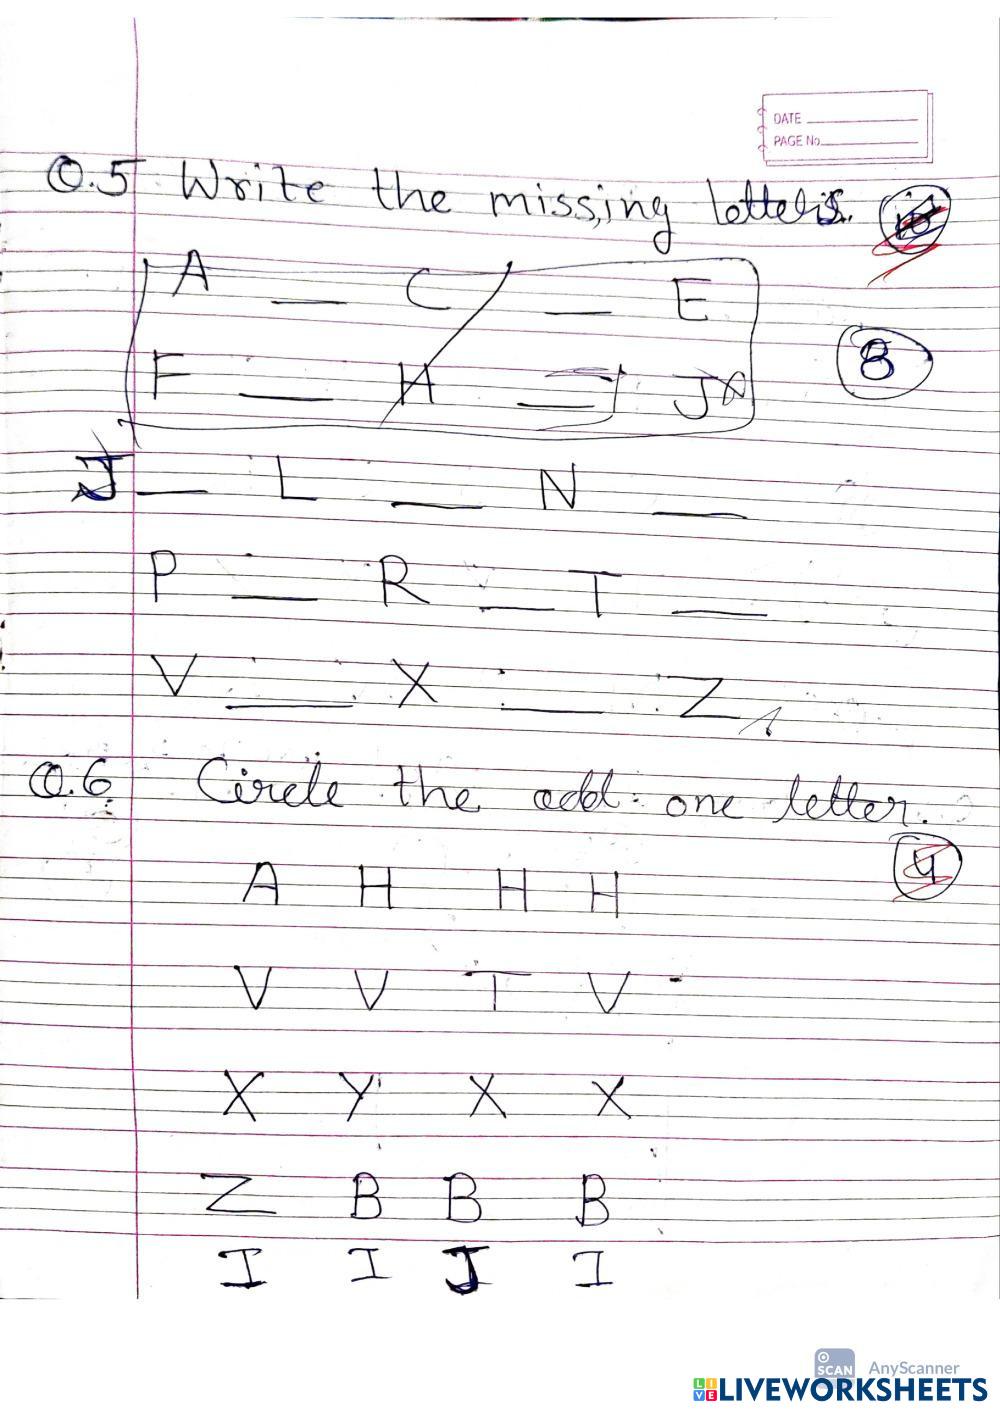 DATE
PAGE No.
Q.5 Write the missing letters.
A __ C __ E
8
F __ H __ J
J __ L __ N __
P __ R __ T __
V __ X __ Z
Q.6 Circle the odd one letter.
4
A H H H
V V T V
X Y X X
Z B B B
I I J I
SCAN AnyScanner
LIVE LIVEWORKSHEETS